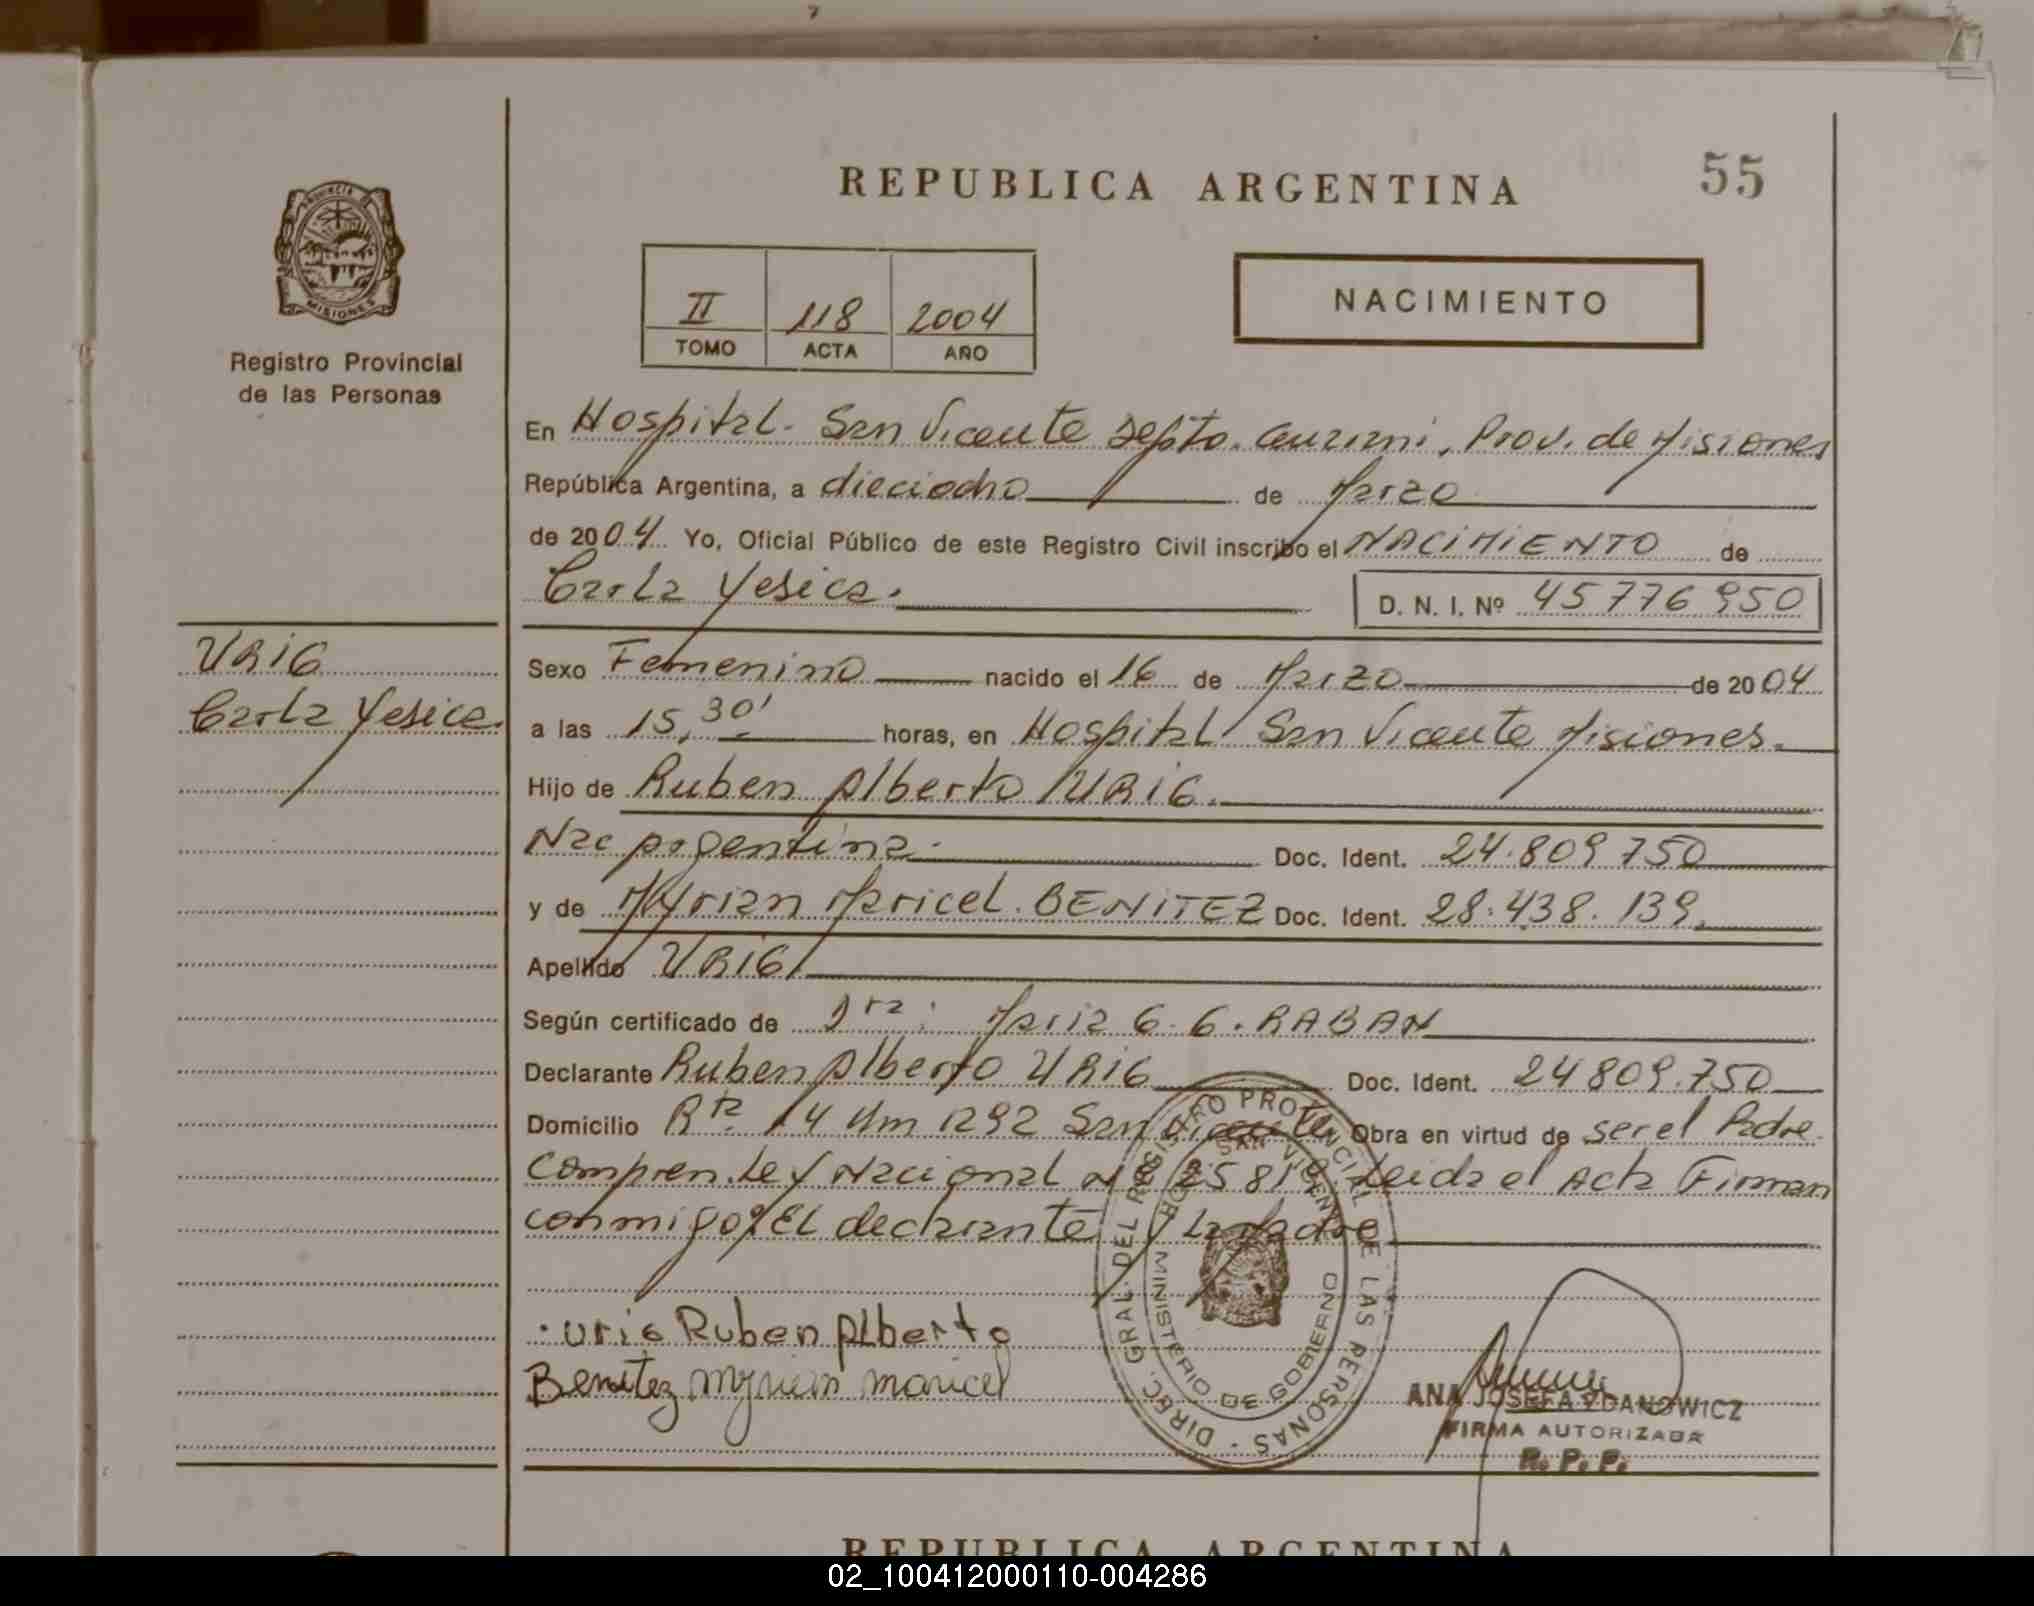 REPUBLICA ARGENTINA
55
PROVINCIA DE
MISIONES
Registro Provincial
de las Personas
II 118 2004
TOMO ACTA AÑO
NACIMIENTO
En Hospital. San Vicente Depto. Guaraní, Prov. de Misiones
República Argentina, a dieciocho de Marzo
de 2004 Yo, Oficial Público de este Registro Civil inscribo el NACIMIENTO de
Carla Yesica.
D. N. I. Nº 45776950
URIG
Carla Yesica.
Sexo Femenino nacido el 16 de Marzo de 2004
a las 15,30' horas, en Hospital San Vicente Misiones.
Hijo de Ruben Alberto URIG.
Nac Argentina. Doc. Ident. 24.809750
y de Myrian Maricel. BENITEZ Doc. Ident. 28.438.139.
Apellido URIG
Según certificado de Dra: Maria G. G. RABAN
Declarante Ruben Alberto URIG Doc. Ident. 24809.750
Domicilio Rta. 14 Km 1292 San Vicente Obra en virtud de ser el Padre.
Compren. Ley Nacional Nº 25819. Leida el Acta Firman
conmigo El declarante y La Madre
DIREC. GRAL. DEL REGISTRO PROVINCIAL DE LAS PERSONAS
SAN VICENTE
MINISTERIO DE GOBIERNO
Urig Ruben Alberto
Benitez Myrian maricel
ANA JOSEFA YDANOWICZ
FIRMA AUTORIZADA
R. P. P.
REPUBLICA ARGENTINA
02_100412000110-004286